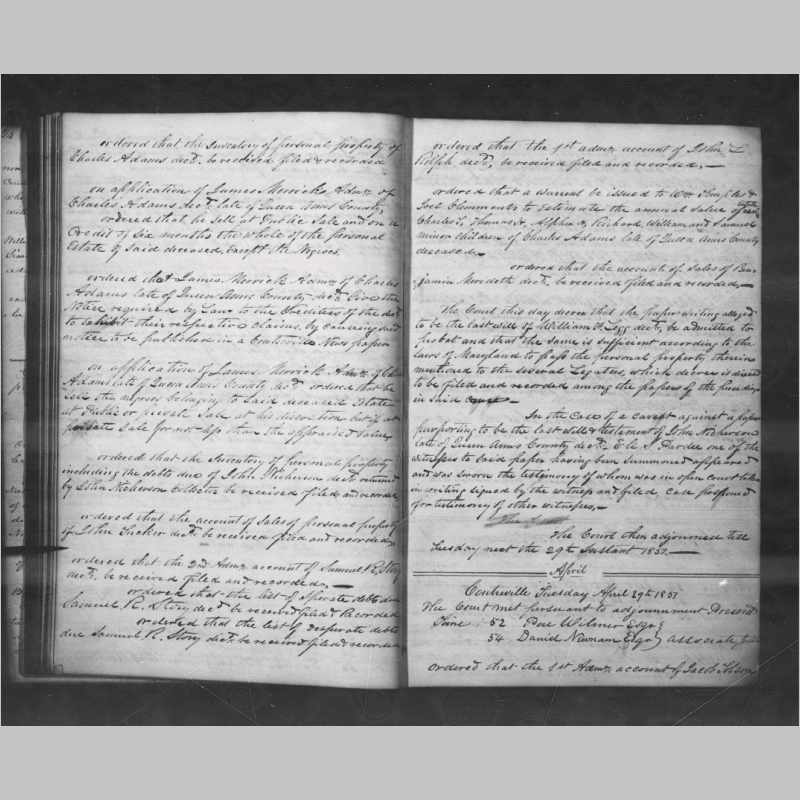 ordered that the Inventory of personal property of
Charles Adams decd. be received filed & recorded
on application of James Merrick Admr. of
Charles Adams decd. late of Queen Anns County,
ordered that he sell at Public Sale and on a
Credit of six months the whole of the personal
Estate of said deceased, Except the Negroes.
ordered that James Merrick Admr. of Charles
Adams late of Queen Anns County decd. Give the
Notice required by Law to the Creditors of the decd.
to Exhibit their respective claims, by causing said
notice to be published in a Centreville News paper
on application of James Merrick Admr. of Chas
Adams late of Queen Anns County decd. ordered that he
sell the negroes belonging to said deceased Estate
at Public or private Sale at his discretion but if at
private Sale for not less than the appraised value
ordered that the Inventory of personal property
including the debts due of John Nicherson decd. returned
by John Nicherson Collector be received filed and recorded
ordered that the account of Sales of personal property
of John Tucker decd. be received filed and recorded
ordered that the 2nd Admr. account of Samuel R. Story
decd. be received filed and recorded.
ordered that the list of sperate debts due
Samuel R. Story decd. be received filed & Recorded
ordered that the list of desperate debts
due Samuel R. Story decd. be received filed & recorded
ordered that the 1st admr. account of John L
Ralph decd. be received filed and recorded.
ordered that a warrant be issued to Wm &
Joel Clements to Estimate the annual value of real
Charles T, Thomas H, Richard, William and Samuel
minor children of Charles Adams late of Queen Anns County
deceased.
ordered that the account of Sales of Ben
jamin Meredith decd. be received filed and recorded.
The Court this day decree that the paper writing alleged
to be the last will of William H. Legg decd., be admitted to
probat and that the same is sufficient according to the
laws of Maryland to pass the personal property therein
mentioned to the several Legatees, which decree is directed
to be filed and recorded among the papers of the proceedings
in said Court.
In the Case of a caveat against a paper
purporting to be the last will & testament of John Nicherson
late of Queen Anns County decd. S. Pardee one of the
witnesses to said paper having been summoned appeared
and was sworn the testimony of whom was in open court taken
in writing signed by the witness and filed, Case postponed
for testimony of other witnesses,
The Court then adjourned till
Tuesday next the 29th Instant 1851.
April
Centreville Tuesday April 29th 1851
The Court met pursuant to adjournment Present
Time 52 Pere Wilmer Esqr
54 David Newnam Esqr associate
ordered that the 1st Admr. account of Jacob